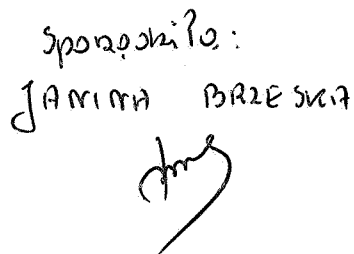 Sporządziła:
JANINA BRZESKA